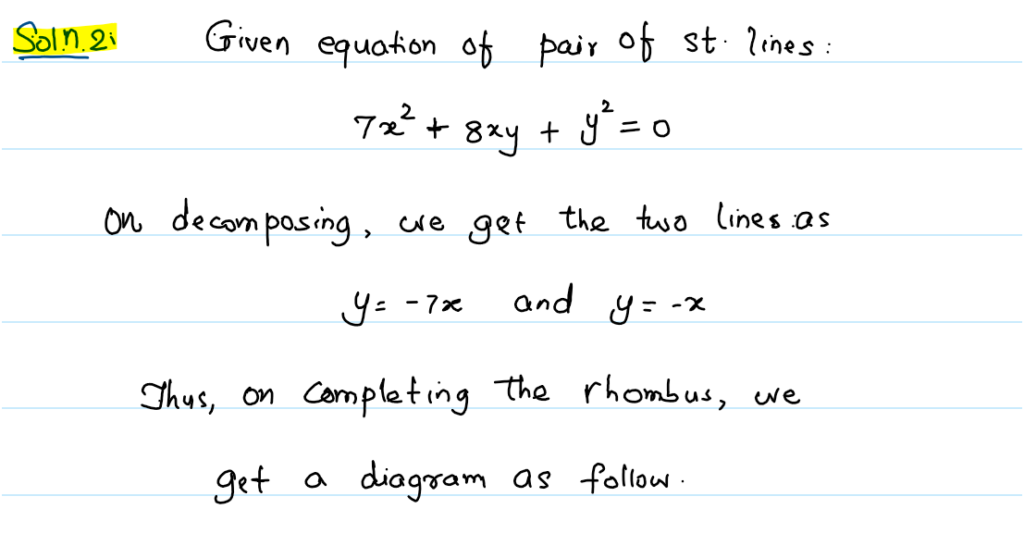 Soln. 2: Given equation of pair of st. lines:
7x² + 8xy + y² = 0
On decomposing, we get the two lines as
y = -7x and y = -x
Thus, on completing the rhombus, we
get a diagram as follow.